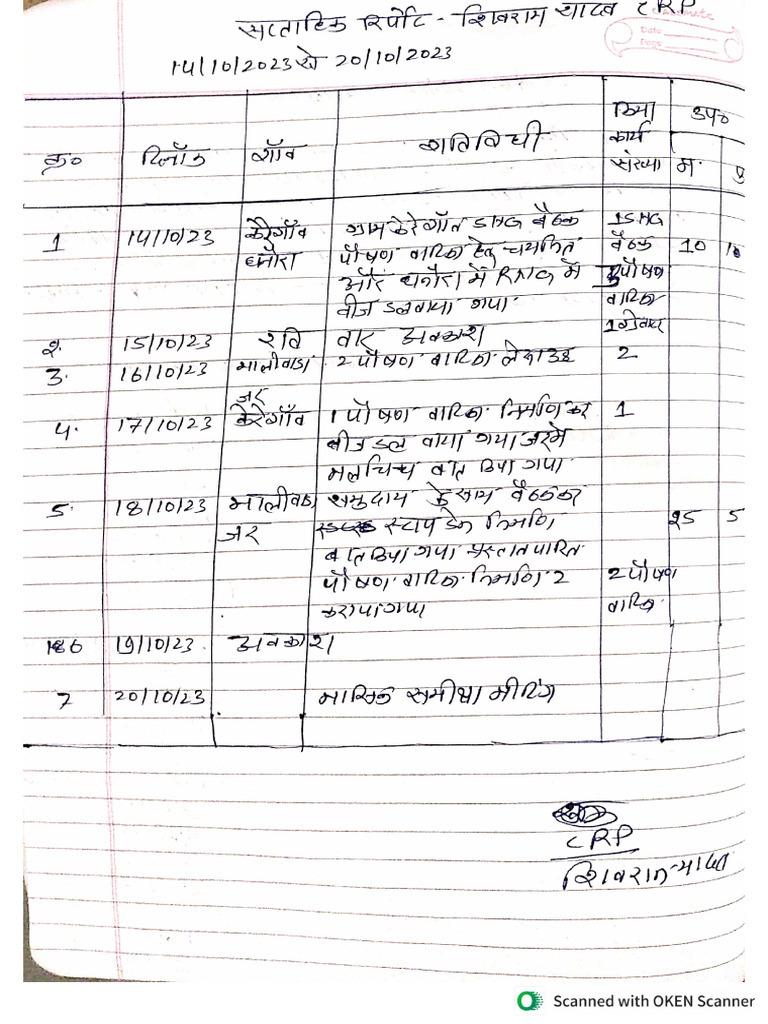 सप्ताहिक रिर्पोट - शिवराम यादव CRP
14/10/2023 से 20/10/2023
Date
Page
क्र० दिनाँक गाँव गतिविधी किया कार्य संख्या उप०
म. पु
1 14/10/23 केरेगाँव ग्राम केरेगाँव SHG बैठक 1 SHG
धनोरा पौषण वाटिका हेतु चयनित बैठक 10
और धनोरा में में पौषण
बीज डलवाया गया वाटिका
2. 15/10/23 रवि वार अवकाश
3. 16/10/23 मालीवाडा 2 पौषण वाटिका लेआउट 2
जर
4. 17/10/23 केरेगाँव 1 पौषण वाटिका निर्माण कर 1
बीज डल वाया गया जरमे
गया
5. 18/10/23 मालीवाडा समुदाय के साथ बैठक कर
जर स्टाप डेम निर्माण 25 5
बात किया गया प्रस्ताव पारित
पौषण वाटिका निर्माण 2 2 पौषण
कराया गया वाटिका
6 19/10/23 अवकाश
7 20/10/23 मासिक समीक्षा मीटिंग
CRP
शिवराम यादव
Scanned with OKEN Scanner